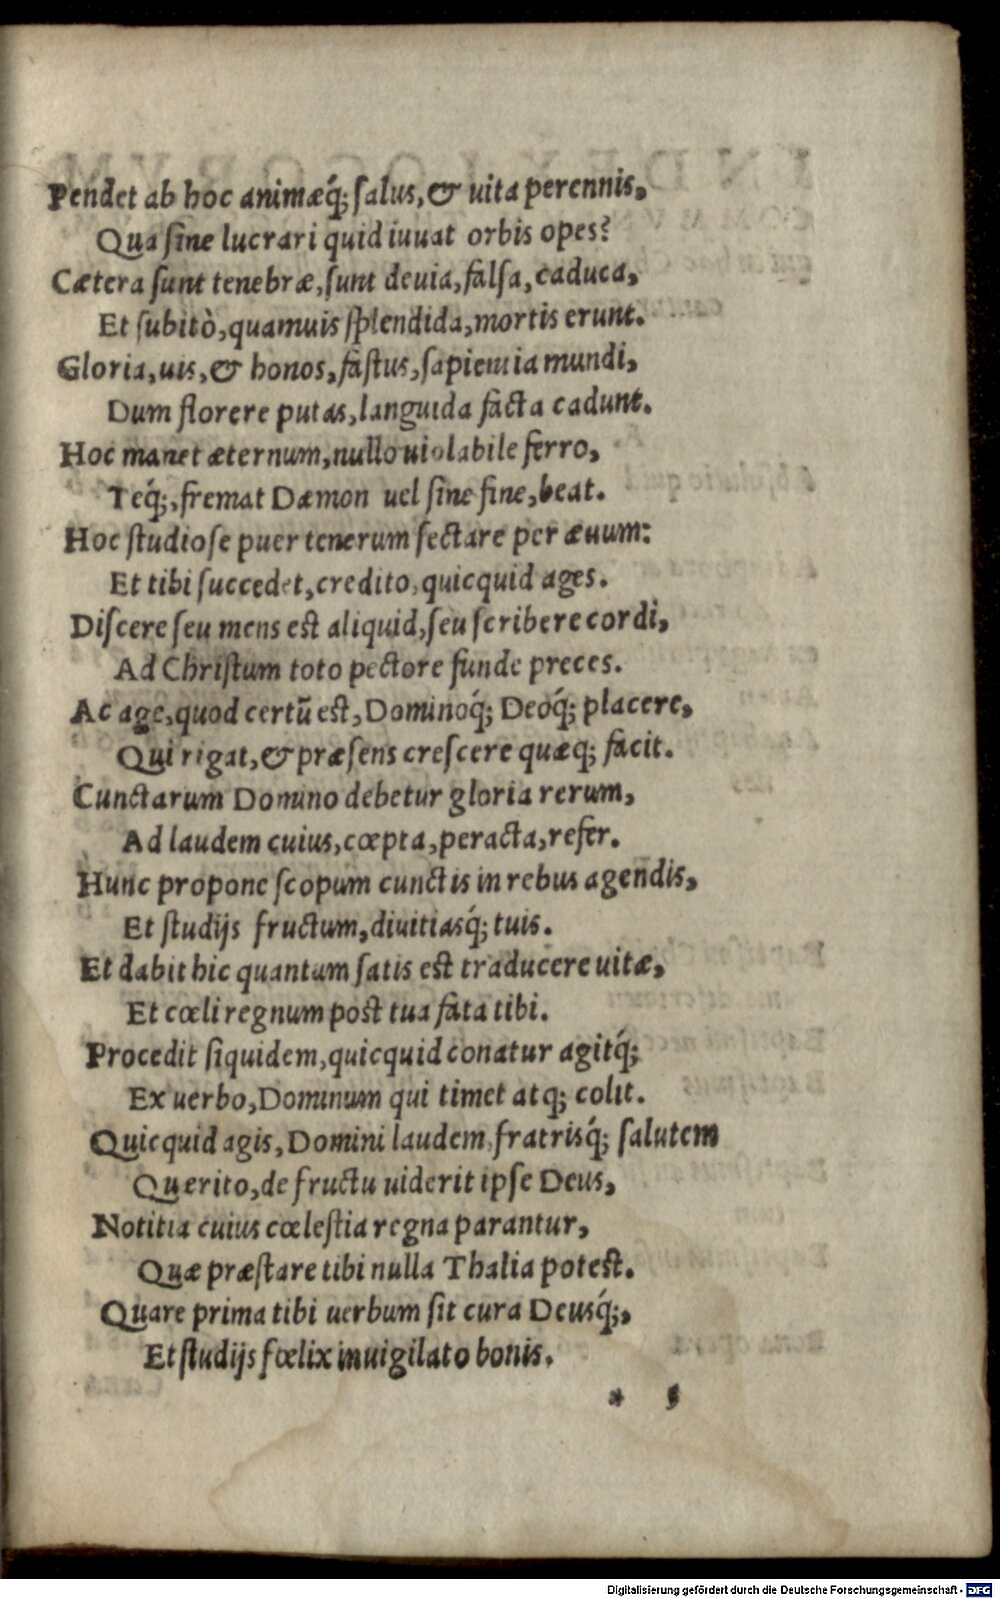 Pendet ab hoc animæq́; ſalus, & uita perennis,
Qua ſine lucrari quid iuuat orbis opes?
Cætera ſunt tenebræ, ſunt deuia, falſa, caduca,
Et ſubitò, quamuis ſplendida, mortis erunt.
Gloria, uis, & honos, faſtus, ſapientia mundi,
Dum florere putas, languida facta cadunt.
Hoc manet æternum, nullo uiolabile ferro,
Teq́;, fremat Dæmon uel ſine fine, beat.
Hoc ſtudioſe puer tenerum ſectare per æuum:
Et tibi ſuccedet, credito, quicquid ages.
Diſcere ſeu mens eſt aliquid, ſeu ſcribere cordi,
Ad Chriſtum toto pectore funde preces.
Ac age, quod certū eſt, Dominoq́; Deoq́; placere,
Qui rigat, & præſens creſcere quæq; facit.
Cunctarum Domino debetur gloria rerum,
Ad laudem cuius, cœpta, peracta, refer.
Hunc propone ſcopum cunctis in rebus agendis,
Et ſtudijs fructum, diuitiasq́; tuis.
Et dabit hic quantum ſatis eſt traducere uitæ,
Et cœli regnum poſt tua fata tibi.
Procedit ſiquidem, quicquid conatur agitq́;
Ex uerbo, Dominum qui timet atq; colit.
Quicquid agis, Domini laudem, fratrisq́; ſalutem
Querito, de fructu uiderit ipſe Deus,
Notitia cuius cœleſtia regna parantur,
Quæ præſtare tibi nulla Thalia poteſt.
Quare prima tibi uerbum ſit cura Deusq́;,
Et ſtudijs fœlix inuigilato bonis.
* 5
Digitalisierung gefördert durch die Deutsche Forschungsgemeinschaft - DFG